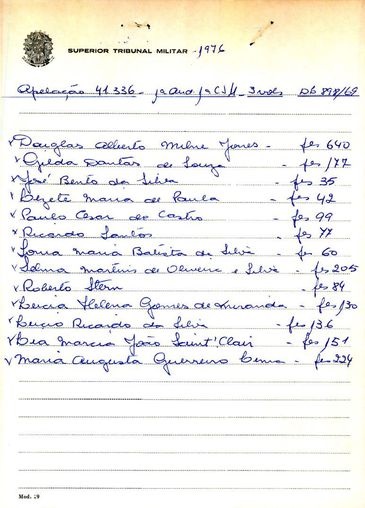 SUPERIOR TRIBUNAL MILITAR - 1976
Apelação 41.336 - 1ª Aud 1ª CJM - 3 vols
Douglas Alberto Milne Jones - fls 640
Gilda Dantas de Souza - fls 177
José Bento da Silva - fls 35
Elizete Maria de Paula - fls 42
Paulo Cesar de Castro - fls 99
Ricardo Santos - fls 77
Sonia Maria Batista da Silva - fls 60
Selma Martins de Oliveira e Silva - fls 205
Roberto Stern - fls 84
Lucia Helena Gomes de Miranda - fls 130
Lucio Ricardo da Silva - fls 136
Lea Marcia João Saint'Clair - fls 151
Maria Augusta Guerreiro Lima - fls 224
Mod. 19